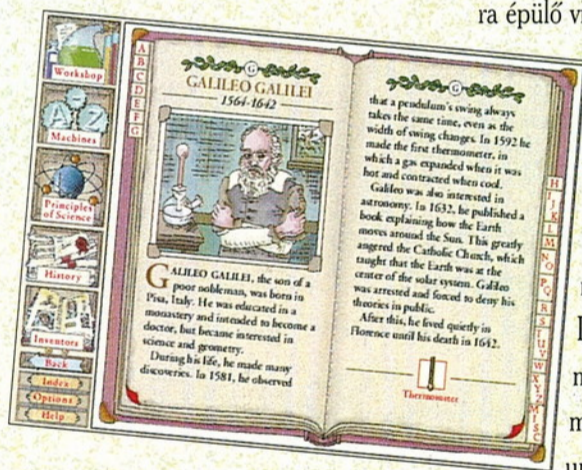 ra épülő
Workshop
Machines
Principles
of Science
History
Inventors
Back
Index
Options
Help
A
B
C
D
E
F
G
G
GALILEO GALILEI
1564-1642
GALILEO GALILEI, the son of a
poor nobleman, was born in
Pisa, Italy. He was educated in a
monastery and intended to become a
doctor, but became interested in
science and geometry.
During his life, he made many
discoveries. In 1581, he observed
G
that a pendulum's swing always
takes the same time, even as the
width of swing changes. In 1592 he
made the first thermometer, in
which a gas expanded when it was
hot and contracted when cool.
Galileo was also interested in
astronomy. In 1632, he published a
book explaining how the Earth
moves around the Sun. This greatly
angered the Catholic Church, which
taught that the Earth was at the
center of the solar system. Galileo
was arrested and forced to deny his
theories in public.
After this, he lived quietly in
Florence until his death in 1642.
Thermometer
H
I
J
K
L
M
N
O
P
Q
R
S
T
U
V
W
X
Y
Z
M
I
S
C